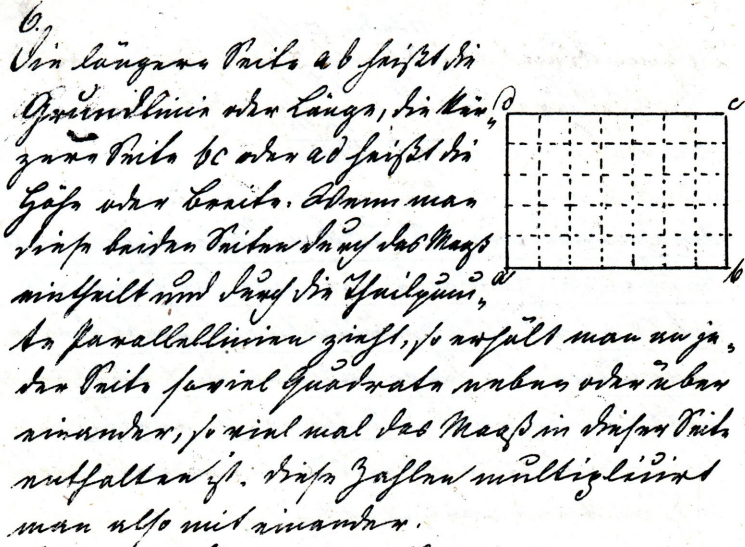 6.
Die längere Seite ab heißt die
Grundlinie oder Länge, die kür=
zere Seite bc oder ad heißt die
Höhe oder Breite. Wenn man
diese beiden Seiten durch das Maaß
eintheilt und durch die Theilpunk=
te Parallellinien zieht, so erhält man an je=
der Seite soviel Quadrate neben oder über
einander, so viel mal das Maaß in dieser Seite
enthalten ist. Diese Zahlen multiplicirt
man also mit einander.
d c
a b